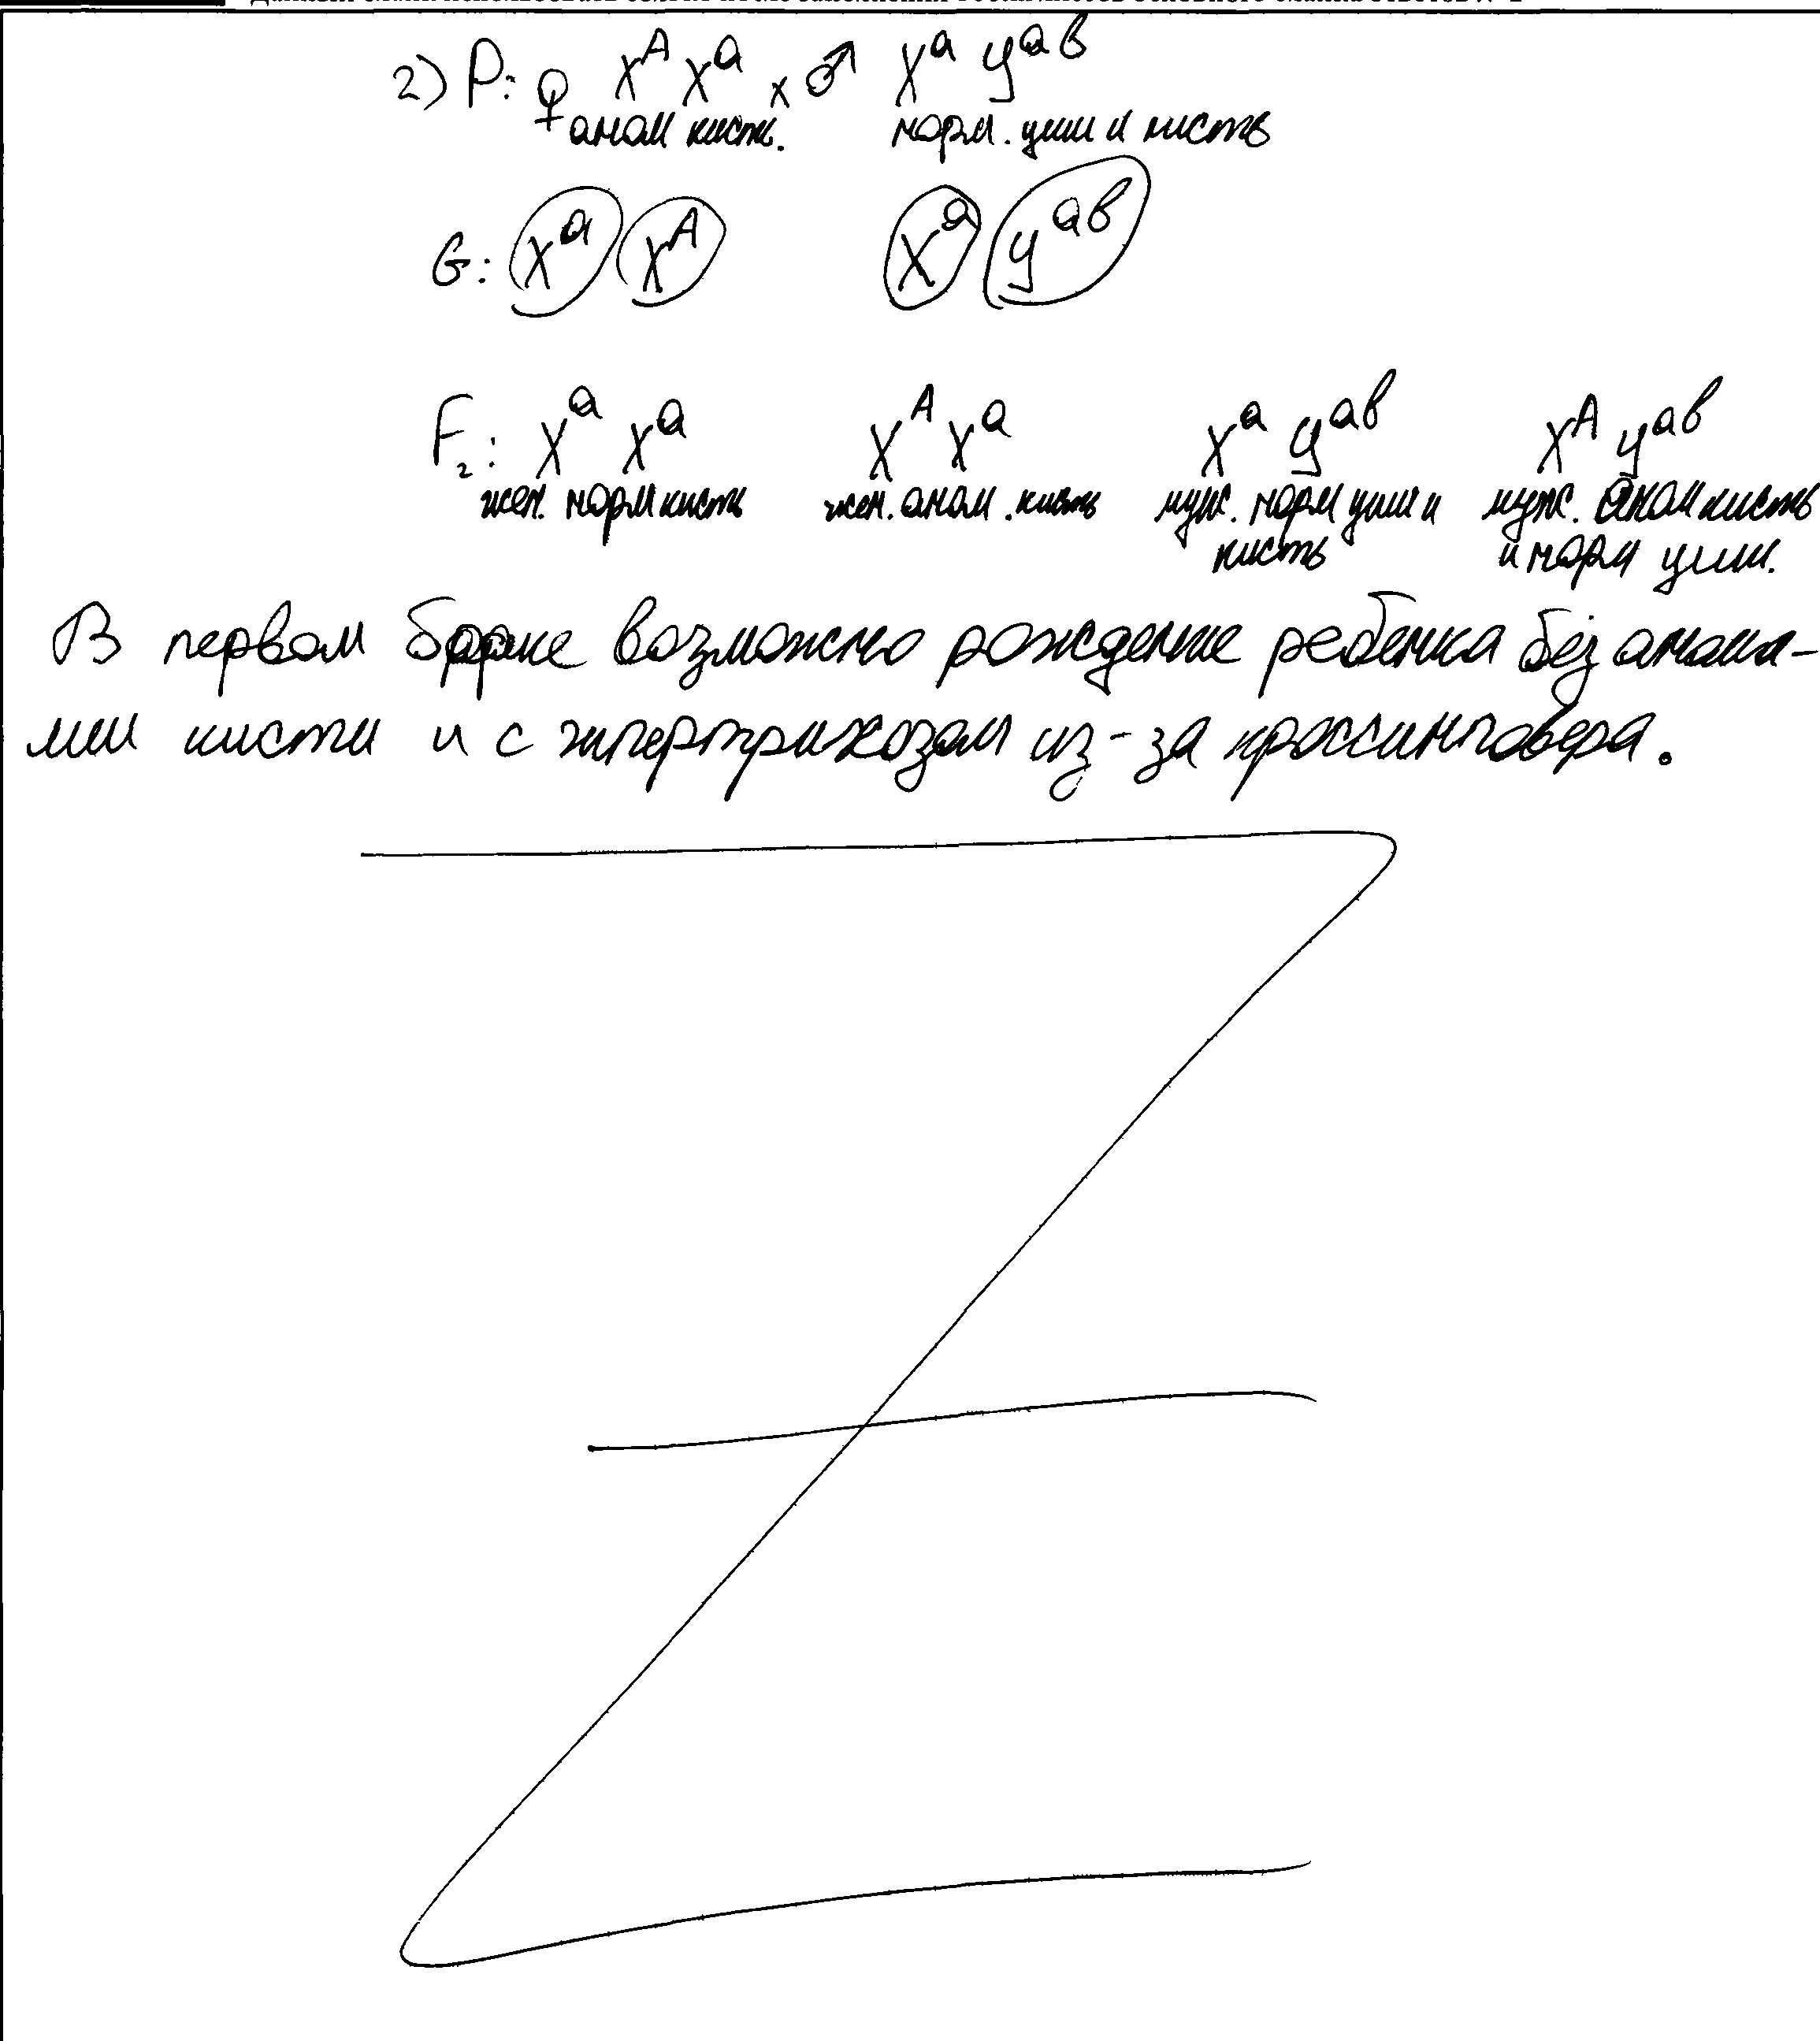 2) P: ♀ X^A X^a x ♂ X^a y^ав
аном кисть. норм. уши и кисть
G: X^a X^A X^a y^ав
F₂: X^a X^a X^A X^a X^a y^ав X^A y^ав
жен. норм кисть жен. аном. кисть муж. норм уши и муж. аном кисть
кисть и норм уши.
В первом браке возможно рождение ребенка без анома-
лии кисти и с гипертрихозом из-за кроссинговера.